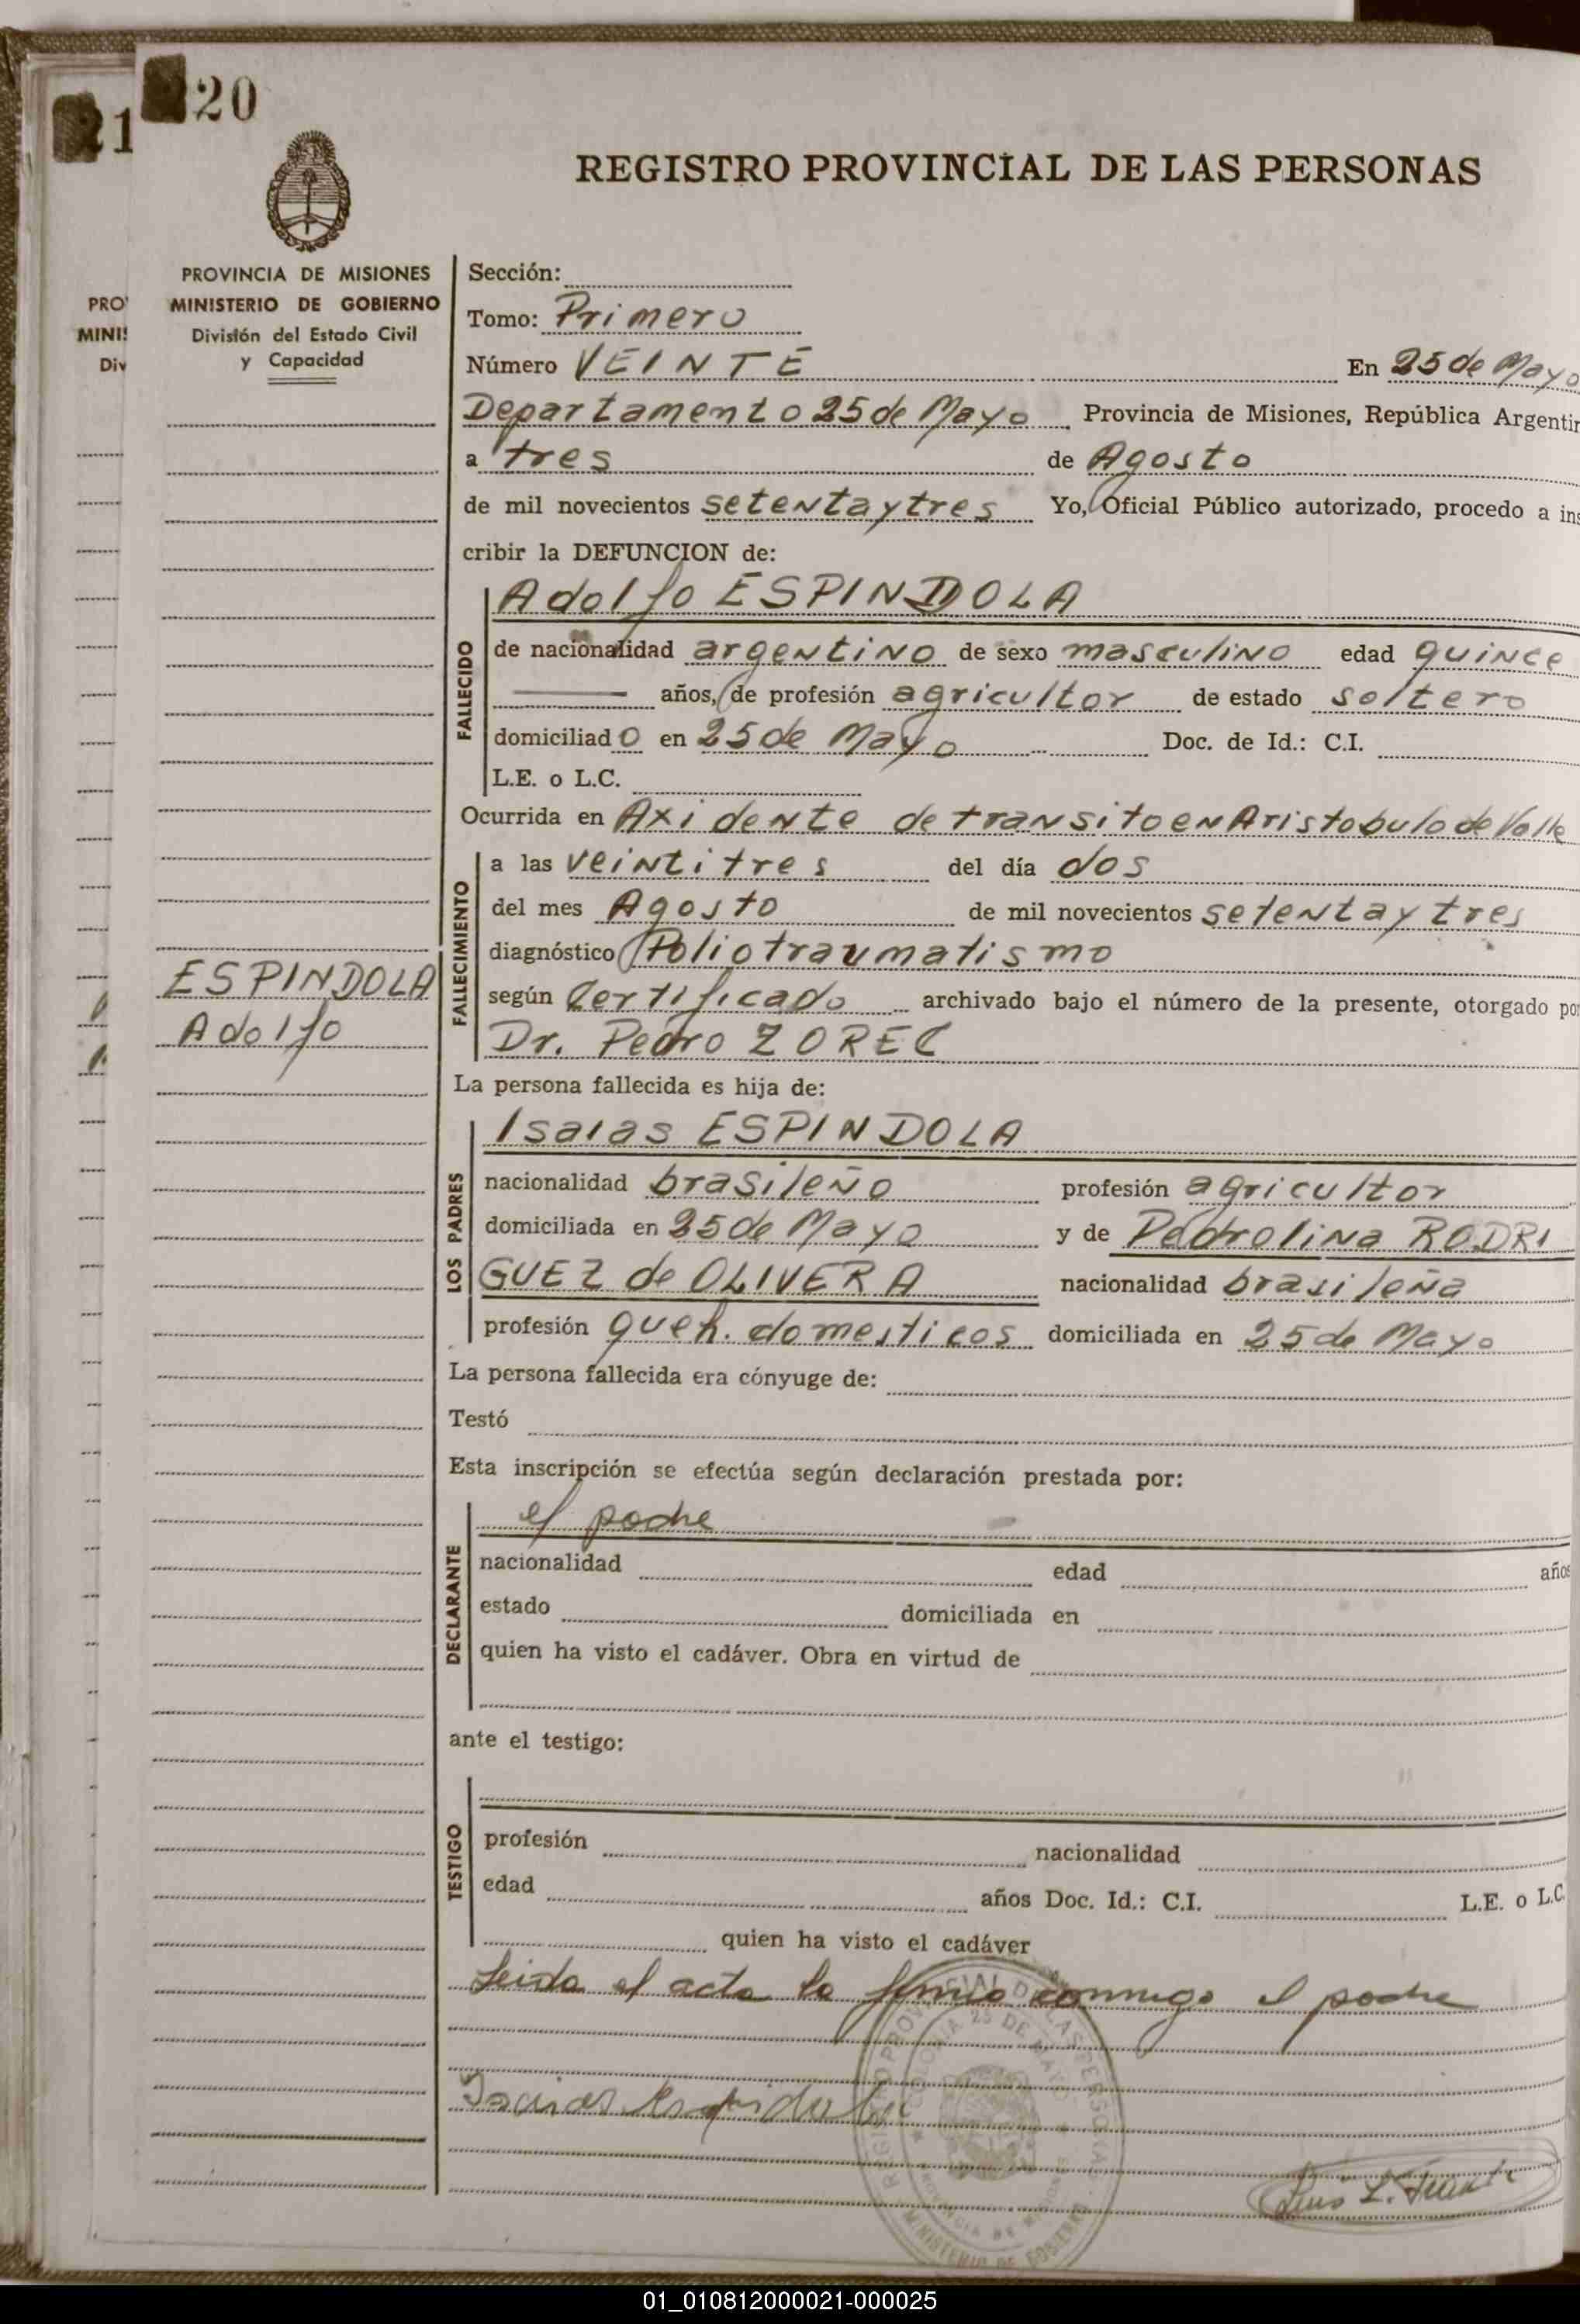 21
20
REGISTRO PROVINCIAL DE LAS PERSONAS
PRO
MINIS
Div
PROVINCIA DE MISIONES
MINISTERIO DE GOBIERNO
División del Estado Civil
y Capacidad
ESPINDOLA
Adolfo
Sección:
Tomo: Primero
Número VEINTE En 25 de Mayo
Departamento 25 de Mayo Provincia de Misiones, República Argentin
a tres de Agosto
de mil novecientos setentaytres Yo, Oficial Público autorizado, procedo a ins
cribir la DEFUNCION de:
FALLECIDO
Adolfo ESPINDOLA
de nacionalidad argentino de sexo masculino edad quince
años, de profesión agricultor de estado soltero
domiciliado en 25 de Mayo Doc. de Id.: C.I.
L.E. o L.C.
Ocurrida en Axidente de transito en Aristobulo de Valle
FALLECIMIENTO
a las veintitres del día dos
del mes Agosto de mil novecientos setentaytres
diagnóstico Poliotraumatismo
según Certificado archivado bajo el número de la presente, otorgado por
Dr. Pedro ZOREC
La persona fallecida es hija de:
LOS PADRES
Isaias ESPINDOLA
nacionalidad brasileño profesión agricultor
domiciliada en 25 de Mayo y de Pedrolina RODRI
GUEZ de OLIVERA nacionalidad brasileña
profesión queh. domesticos domiciliada en 25 de Mayo
La persona fallecida era cónyuge de:
Testó
Esta inscripción se efectúa según declaración prestada por:
DECLARANTE
el padre
nacionalidad edad años
estado domiciliada en
quien ha visto el cadáver. Obra en virtud de
ante el testigo:
TESTIGO
profesión nacionalidad
edad años Doc. Id.: C.I. L.E. o L.C.
quien ha visto el cadáver
Leida el acta la firma conmigo el padre
Isaias Espindola
REGISTRO PROVINCIAL DE LAS PERSONAS
COLONIA 25 DE MAYO
PROVINCIA DE MISIONES
MINISTERIO DE GOBIERNO
01_010812000021-000025